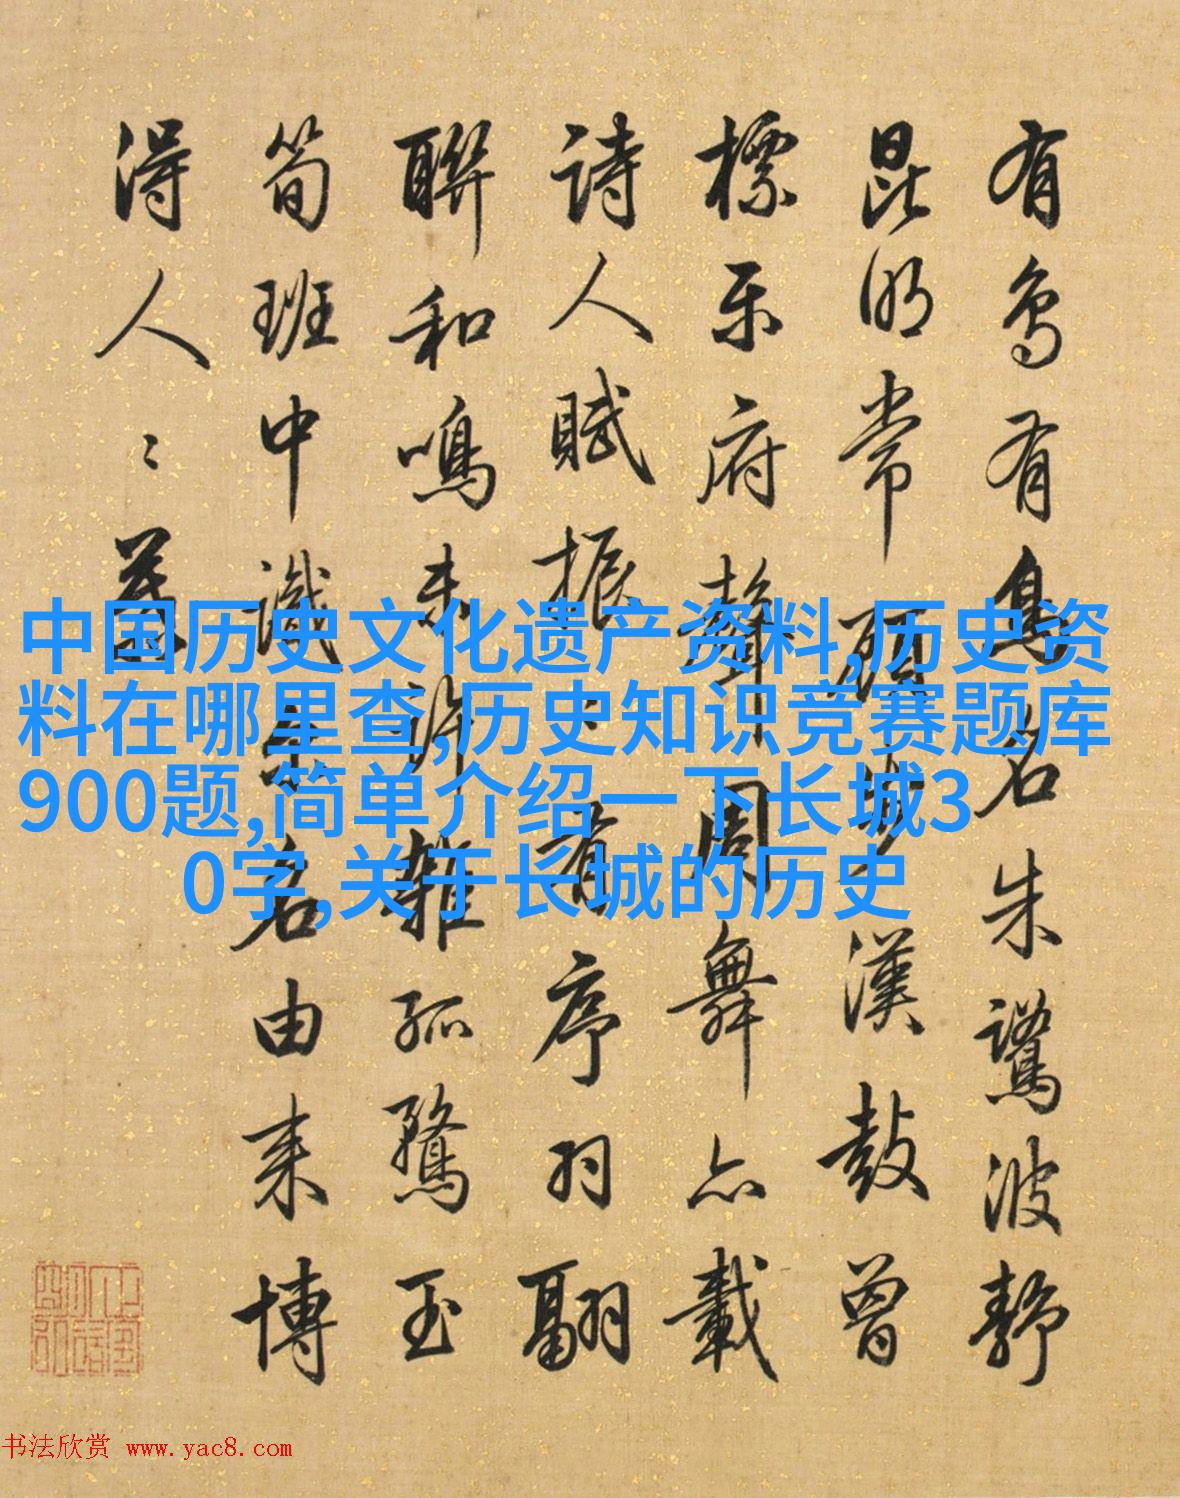 有鳥有鳥名朱鷺波静
昆明常漢鼓曾
標乐府聲周舞亦載
詩人賦振〻有序羽翩
聯和鳴未許雜孤鶩玉
筍班中識名由来博
得人〻
中国历史文化遗产资料,历史资
料在哪里查,历史知识竞赛题库
900题,简单介绍一下长城3
0字,关于长城的历史
书法欣赏 www.yac8.com